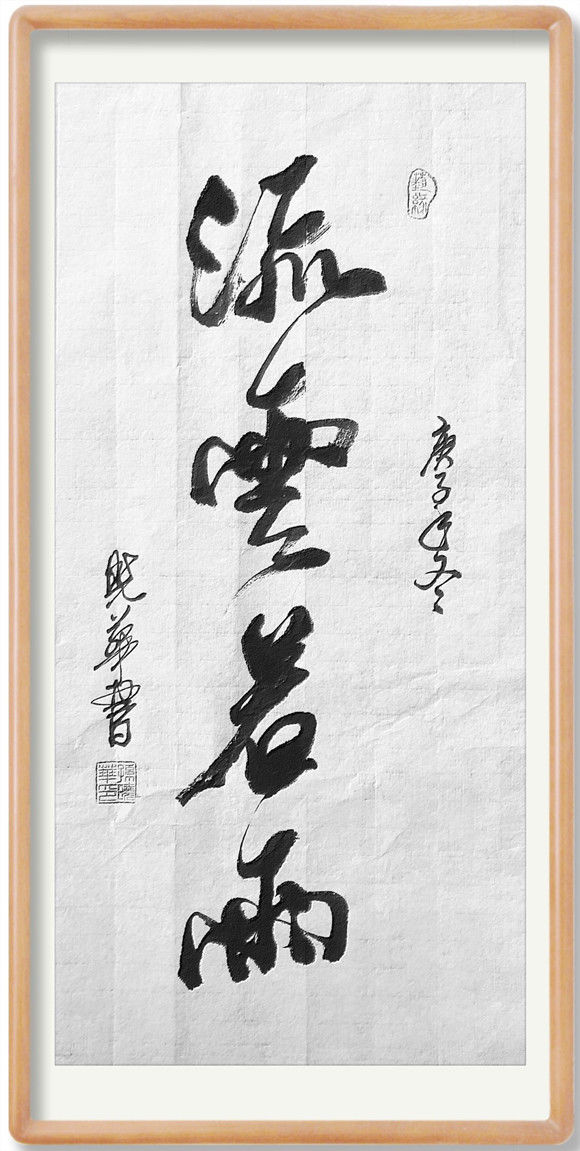 庚子年冬
流雲若雨
晓華書